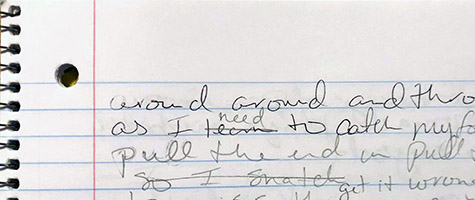 around around and thro
as I learn need to catch my fo
pull the end in pull
so I snatch get it wrong